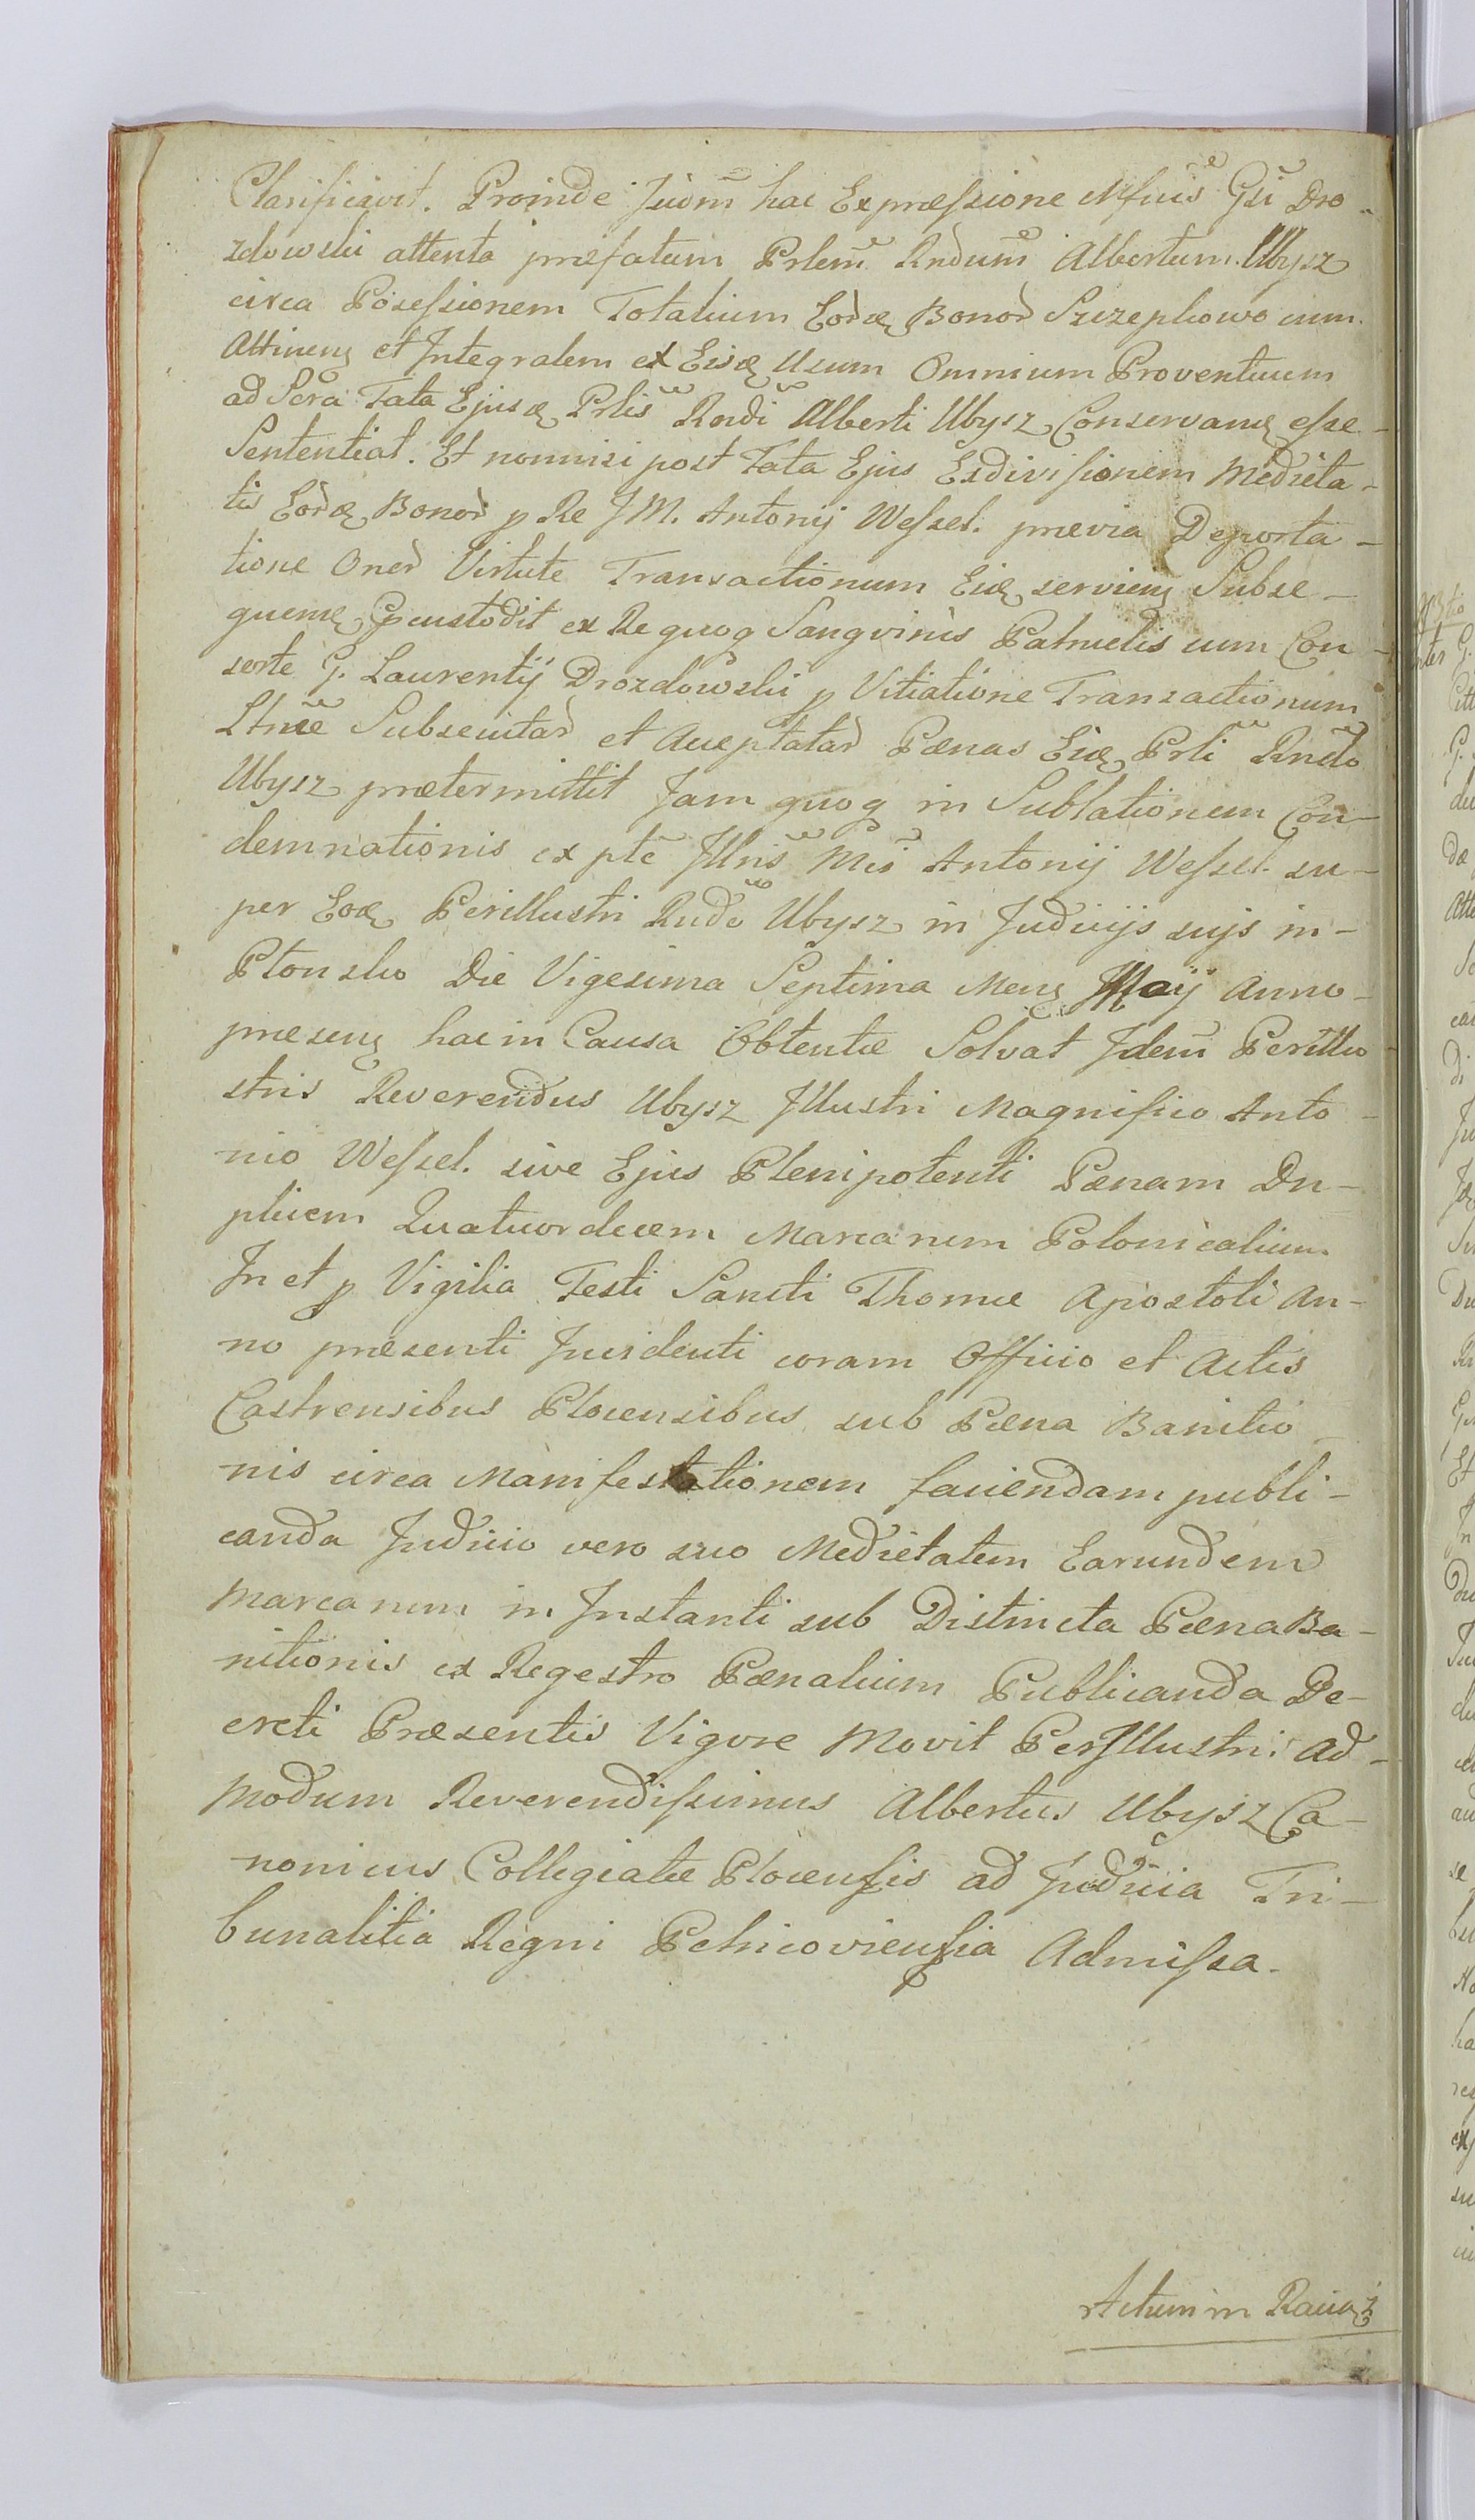 Clarificavit. Proinde Judm̃ hac Expræssione Mfcis Gsi Dro-
zdowski attenta præfatum Prlem̃ Rndum̃ Albertum Ubysz
circa Posessionem Totalium Eordq Bonor Szczepkowo cum
Attineng et Integralem ex Eisq Usum Omnium Proventuum
ad Sera Fata Ejusq Prlis Rndi Alberti Ubysz Conservang esse
Sententiat. Et nonnisi post Fata Ejus Exdivisionem Medieta-
tis Eordq Bonor p Re J M. Antonij Wessel. prævia Deporta-
tione Oner Virtute Transactionum Eidq servieng Subse-
quemq Præcustodit ex Re quoq Sangvinis Patruelis cum Con-
sorte G. Laurentij Drozdowski p Vitiatione Transactionum
Ltmæ Subsecutar et Acceptatar Pænas Eidq Prli Rndo
Ubysz prætermittit Jam quoq in Sublationem Con-
demnationis ex pte Jllris Mci Antonij Wessel. su-
per Eodq Perillustri Rndo Ubysz in Judicijs sujs in-
Płonsko Die Vigesima Septima Meng Maij Anno-
præseng hac in Causa Obtentæ Solvat Idem Perillu-
stris Reverendus Ubysz Jllustri Magnifico Anto-
nio Wessel. sive Ejus Plenipotenti Pænam Du-
plicem Quatuordecem Marcarum Polonicalium
In et p Vigilia Festi Sancti Thomæ Apostoli An-
no præsenti Incidenti coram Officio et Actis
Castrensibus Plocensibus sub Pæna Banitio-
nis circa Manifestationem faciendam publi-
canda Judicio vero suo Medietatem Earundem
Marcarum in Instanti sub Distincta Pæna Ba-
nitionis ex Regestro Pænalium Publicanda De-
creti Præsentis Vigore Movit PerJllustri: Ad-
modum Reverendissimus Albertus Ubysz Ca-
nonicus Collegiatæ Plocensis ad Judicia Tri-
bunalitia Regni Petricoviensia Admissa.
Actum in Raciąż